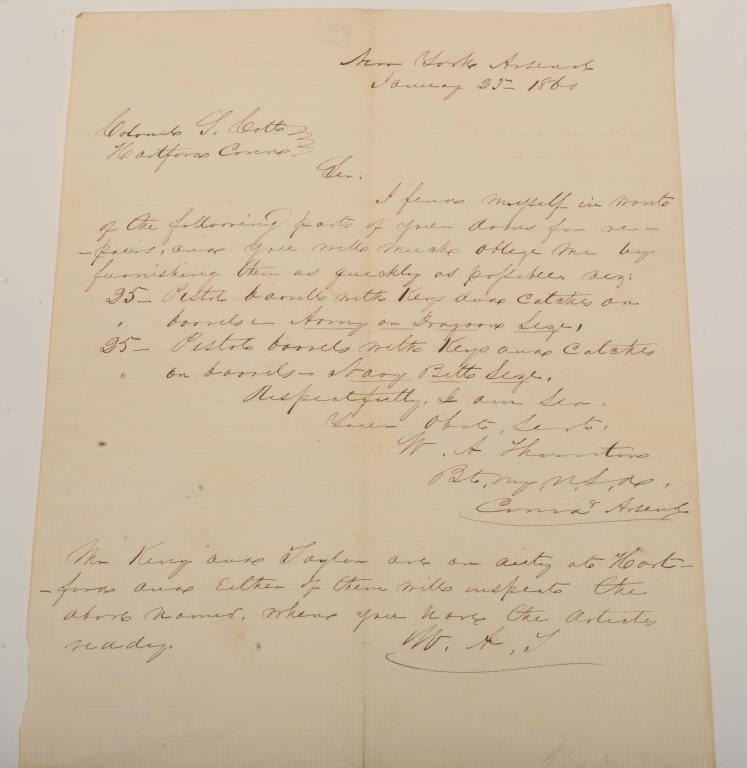 New York Arsenal
January 25- 1860
Colonel S. Colt
Hartford Conne
Sir:
I find myself in want
of the following parts of your arms for re-
-pairs, and you will much oblige me by
furnishing them as quickly as possible, viz:
25- Pistol barrels with Keys and Catches on
" barrels - Army or Dragoon Size,
25- Pistol barrels with Keys and Catches
" on barrels - Navy Belt Size.
Respectfully, I am Sir.
Your Obdt. Servt.
W. A. Thornton
Bt. Maj. U.S.A.
Comd'g Arsenal
Mr King and Taylor are on duty at Hart-
-ford and Either of them will inspect the
above named, when you have the Articles
ready.
W. A. T